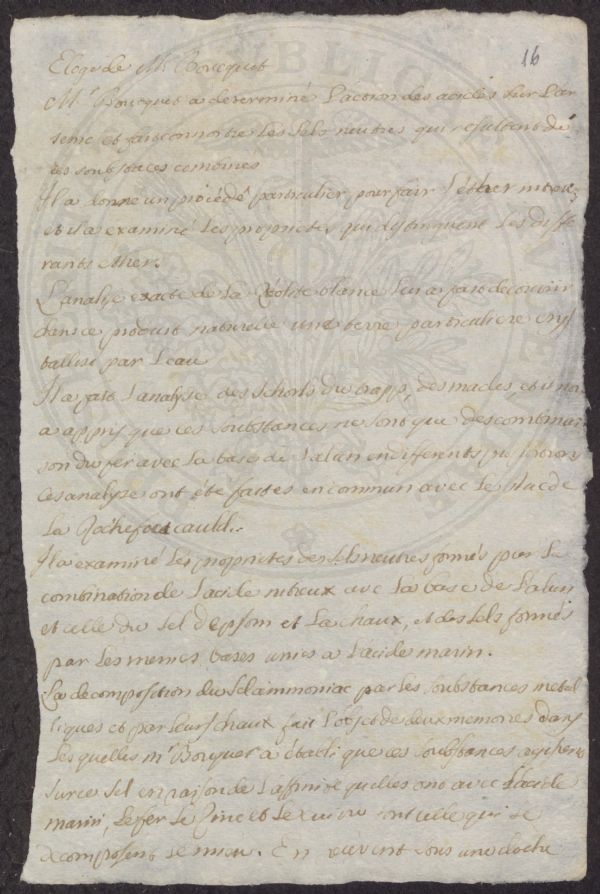 16
Eloge de Mr Boucquet
Mr Boucquet a determiné l'action des acides sur l'ar
senic et fait connoitre les sels neutres qui resultent de
ces soubstaces combines
Il a donne un procédé particulier pour fair l'éther nitreux
et il a examiné les proprietes qui distinguent les diffe
rants ether.
L'analyse exacte de la Zeolite blanche lui a fait decouvrir
dans ce produit naturelle une terre particuliere crys
tallise par l'eau
Il a fait l'analyse des schorls du trapp, des macles, et il nous
a appris que ces soubstances ne sont que des combinai
son du fer avec la base de l'alun en differents proportions
ces analyse ont éte faites en commun avec le duc de
la Rochefoucauld.
Il a examiné les proprietes des sels neutres formés par la
combination de l'acide nitreux avec la base de l'alun
et celle du sel d'epsom et la chaux, et des sels formés
par les memes bases unies a l'acide marin.
La decomposition du sel ammoniac par les soubstances metal
liques et par leurs chaux fait l'objet de deux memoires dans
les quelles mr Bouquet a établi que ces soubstances agissent
sur ce sel en raison de l'affinité quelles ont avec l'acide
marin, le fer le Zinc et le cuivre ont celle qui le
decomposent le mieu. En sous une cloche